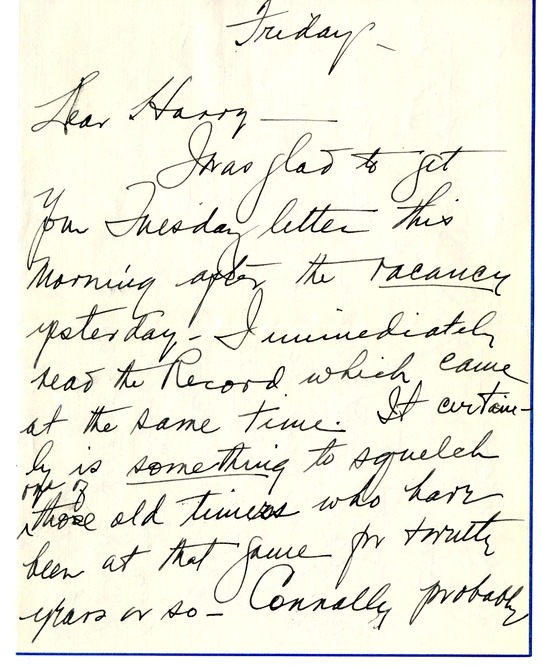 Friday -
Dear Harry —
I was glad to get
your Tuesday letter this
morning after the vacancy
yesterday - I immediately
read the Record which came
at the same time. It certain-
ly is something to squelch
one of
those old timers who have
been at that game for twenty
years or so - Connally probably